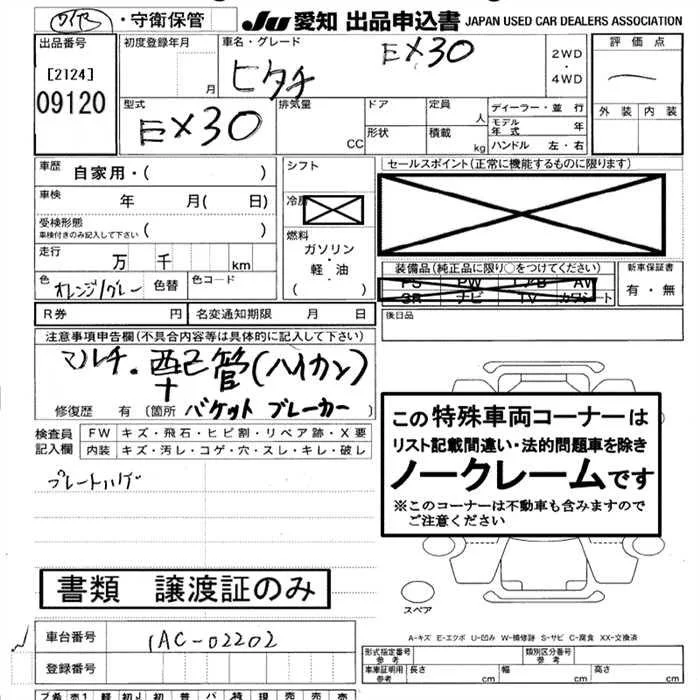 ・守衛保管
JU 愛知 出品申込書 JAPAN USED CAR DEALERS ASSOCIATION
出品番号
[2124]
09120
初度登録年月
月
車名・グレード
ヒタチ EX30
2WD
・
4WD
評価点
外装 内装
型式
EX30
排気量
CC
ドア
形状
定員
人
積載
kg
ディーラー・並行
モデル年式 年
ハンドル 左・右
車歴 自家用・( )
車検 年 月( 日)
受検形態
車検付きのみ記入して下さい ( )
走行 万 千 km
色 オレンジ/グレー 色替 色コード
シフト
冷房
燃料
ガソリン
・
軽油
( )
セールスポイント(正常に機能するものに限ります)
装備品(純正品に限り○をつけてください)
PS PW エアB AW
SR ナビ TV カワシート
新車保証書
有・無
R券 円 名変通知期限 月 日
後日品
注意事項申告欄(不具合内容等は具体的に記入して下さい)
マルチ・配管(ハイカン)
修復歴 有 〔箇所 バケット ブレーカー
検査員記入欄
FW キズ・飛石・ヒビ割・リペア跡・X要
内装 キズ・汚レ・コゲ・穴・スレ・キレ・破レ
プレートハゲ
この特殊車両コーナーは
リスト記載間違い・法的問題車を除き
ノークレームです
※このコーナーは不動車も含みますので
ご注意ください
スペア
書類 譲渡証のみ
A-キズ E-エクボ U-凹み W-補修跡 S-サビ C-腐食 XX-交換済
車台番号 1AC-02202
登録番号
形式指定番号
参考
類別区分番号
参考
車庫証明用
参考
長さ cm 幅 cm 高さ cm